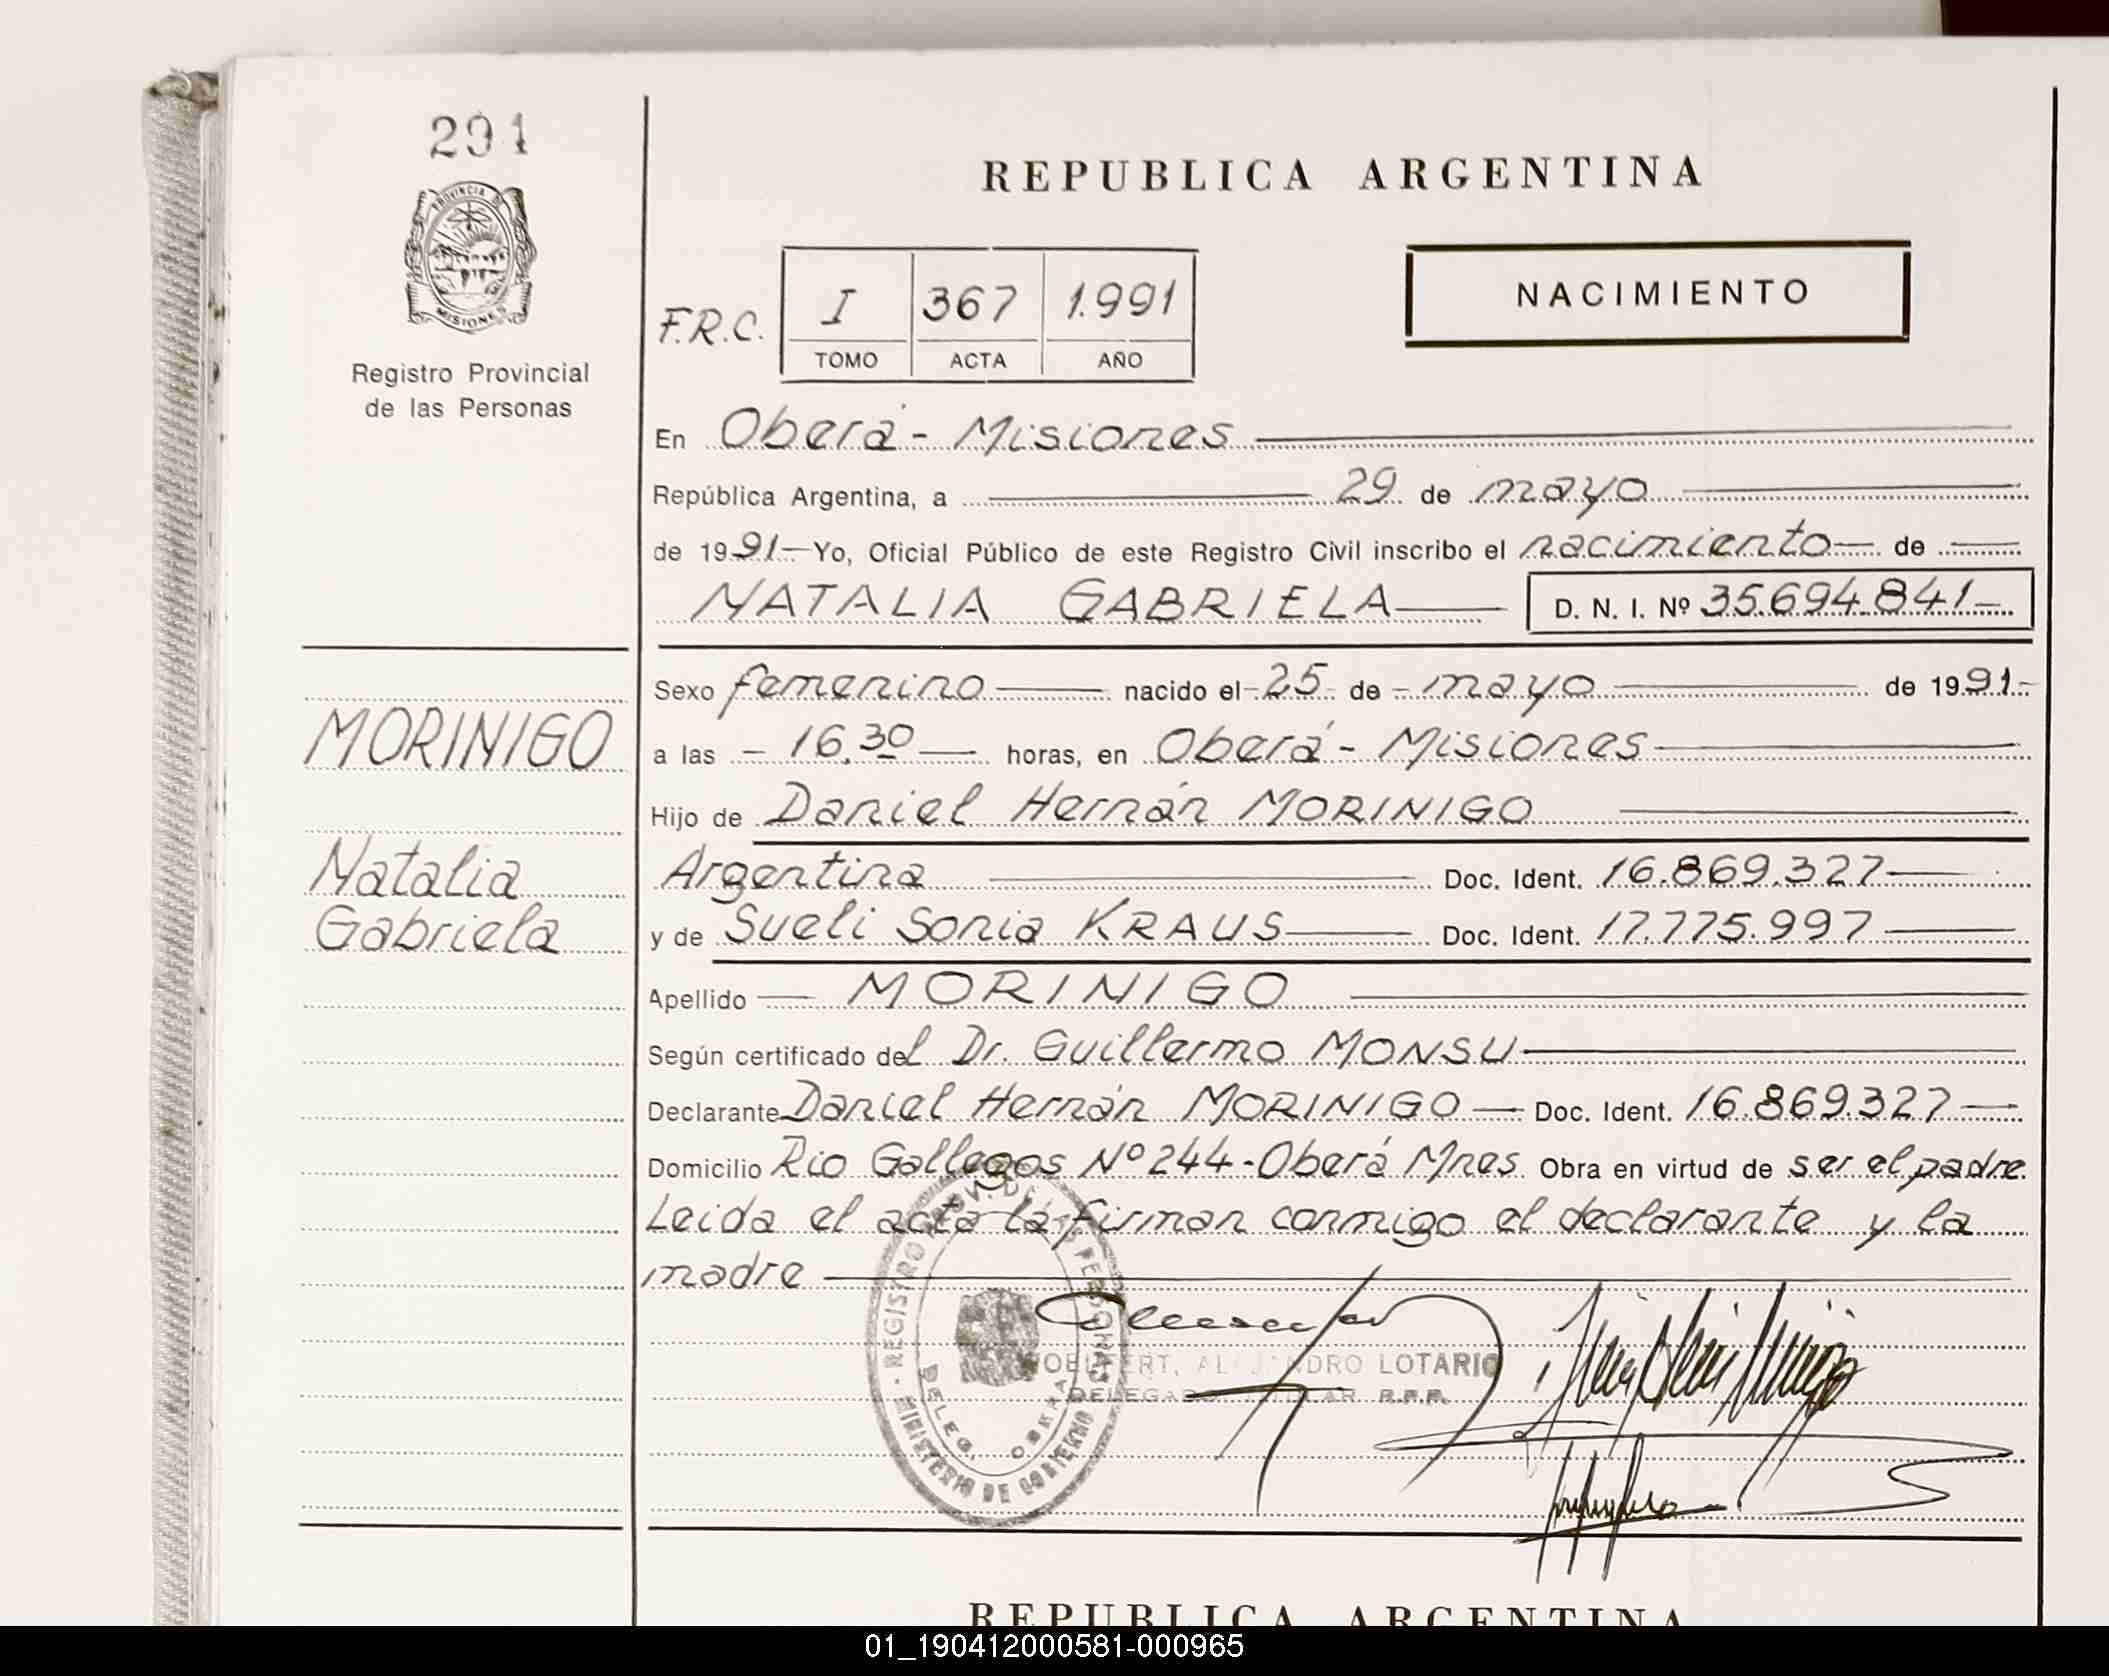 291
PROVINCIA DE
MISIONES
Registro Provincial
de las Personas
REPUBLICA ARGENTINA
NACIMIENTO
F.R.C. I 367 1.991
TOMO ACTA AÑO
En Oberá - Misiones
República Argentina, a 29 de mayo
de 1991 Yo, Oficial Público de este Registro Civil inscribo el nacimiento de
NATALIA GABRIELA D. N. I. Nº 35.694.841
Sexo femenino nacido el 25 de mayo de 1991
a las 16.30 horas, en Oberá - Misiones
Hijo de Daniel Hernán MORINIGO
Argentina Doc. Ident. 16.869.327
y de Sueli Sonia KRAUS Doc. Ident. 17.775.997
Apellido MORINIGO
Según certificado del Dr. Guillermo MONSU
Declarante Daniel Hernán MORINIGO Doc. Ident. 16.869.327
Domicilio Rio Gallegos Nº 244 - Oberá Mnes. Obra en virtud de ser el padre.
Leida el acta la firman conmigo el declarante y la
madre
MORINIGO
Natalia
Gabriela
REGISTRO PROV. DE LAS PERSONAS
MINISTERIO DE GOBIERNO
DELEG. OBERA
LOTARIO
DELEGADO TITULAR R.P.P.
REPUBLICA ARGENTINA
01_190412000581-000965